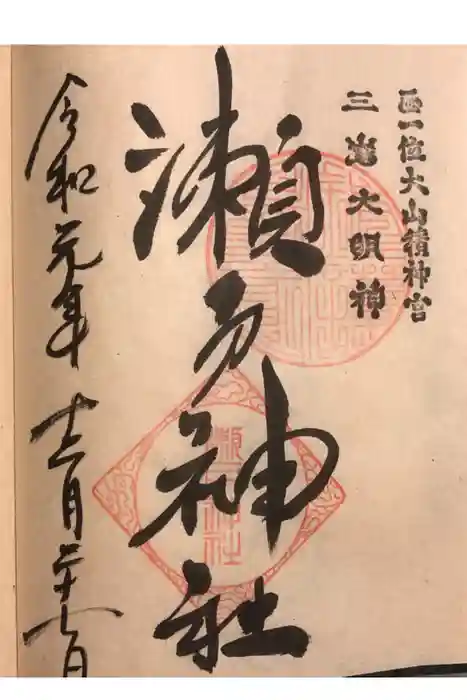 正一位大山積神宮
三嶌大明神
瀬戸神社
令和元年十二月二十七日